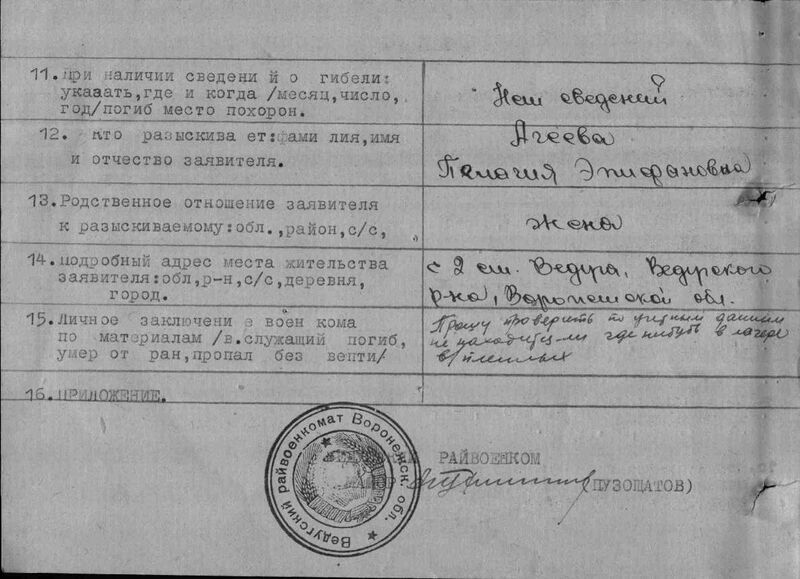 11. При наличии сведени й о гибели:
указать,где и когда /месяц,число,
год/погиб место похорон.
Нет сведений
12. Кто разыскива ет:фами лия,имя
и отчество заявителя.
Агеева
Пелагия Эпифановна
13.Родственное отношение заявителя
к разыскиваемому:обл.,район,с/с,
жена
14. Подробный адрес места жительства
заявителя:обл,р-н,с/с,деревня,
город.
с 2 ст. Ведуга, Ведугского
р-на, Воронежской обл.
15.Личное заключени е воен кома
по материалам /в.служащий погиб,
умер от ран,пропал без вепти/
Прошу проверить по учетным данным
не находится-ли где нибудь в лагере
в/пленных
16.ПРИЛОЖЕНИЕ.
Ведугский райвоенкомат Воронежск. обл.
РАЙВОЕНКОМ
(ПУЗОЩАТОВ)